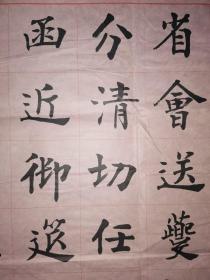 省會送夔
分清切任
函近御